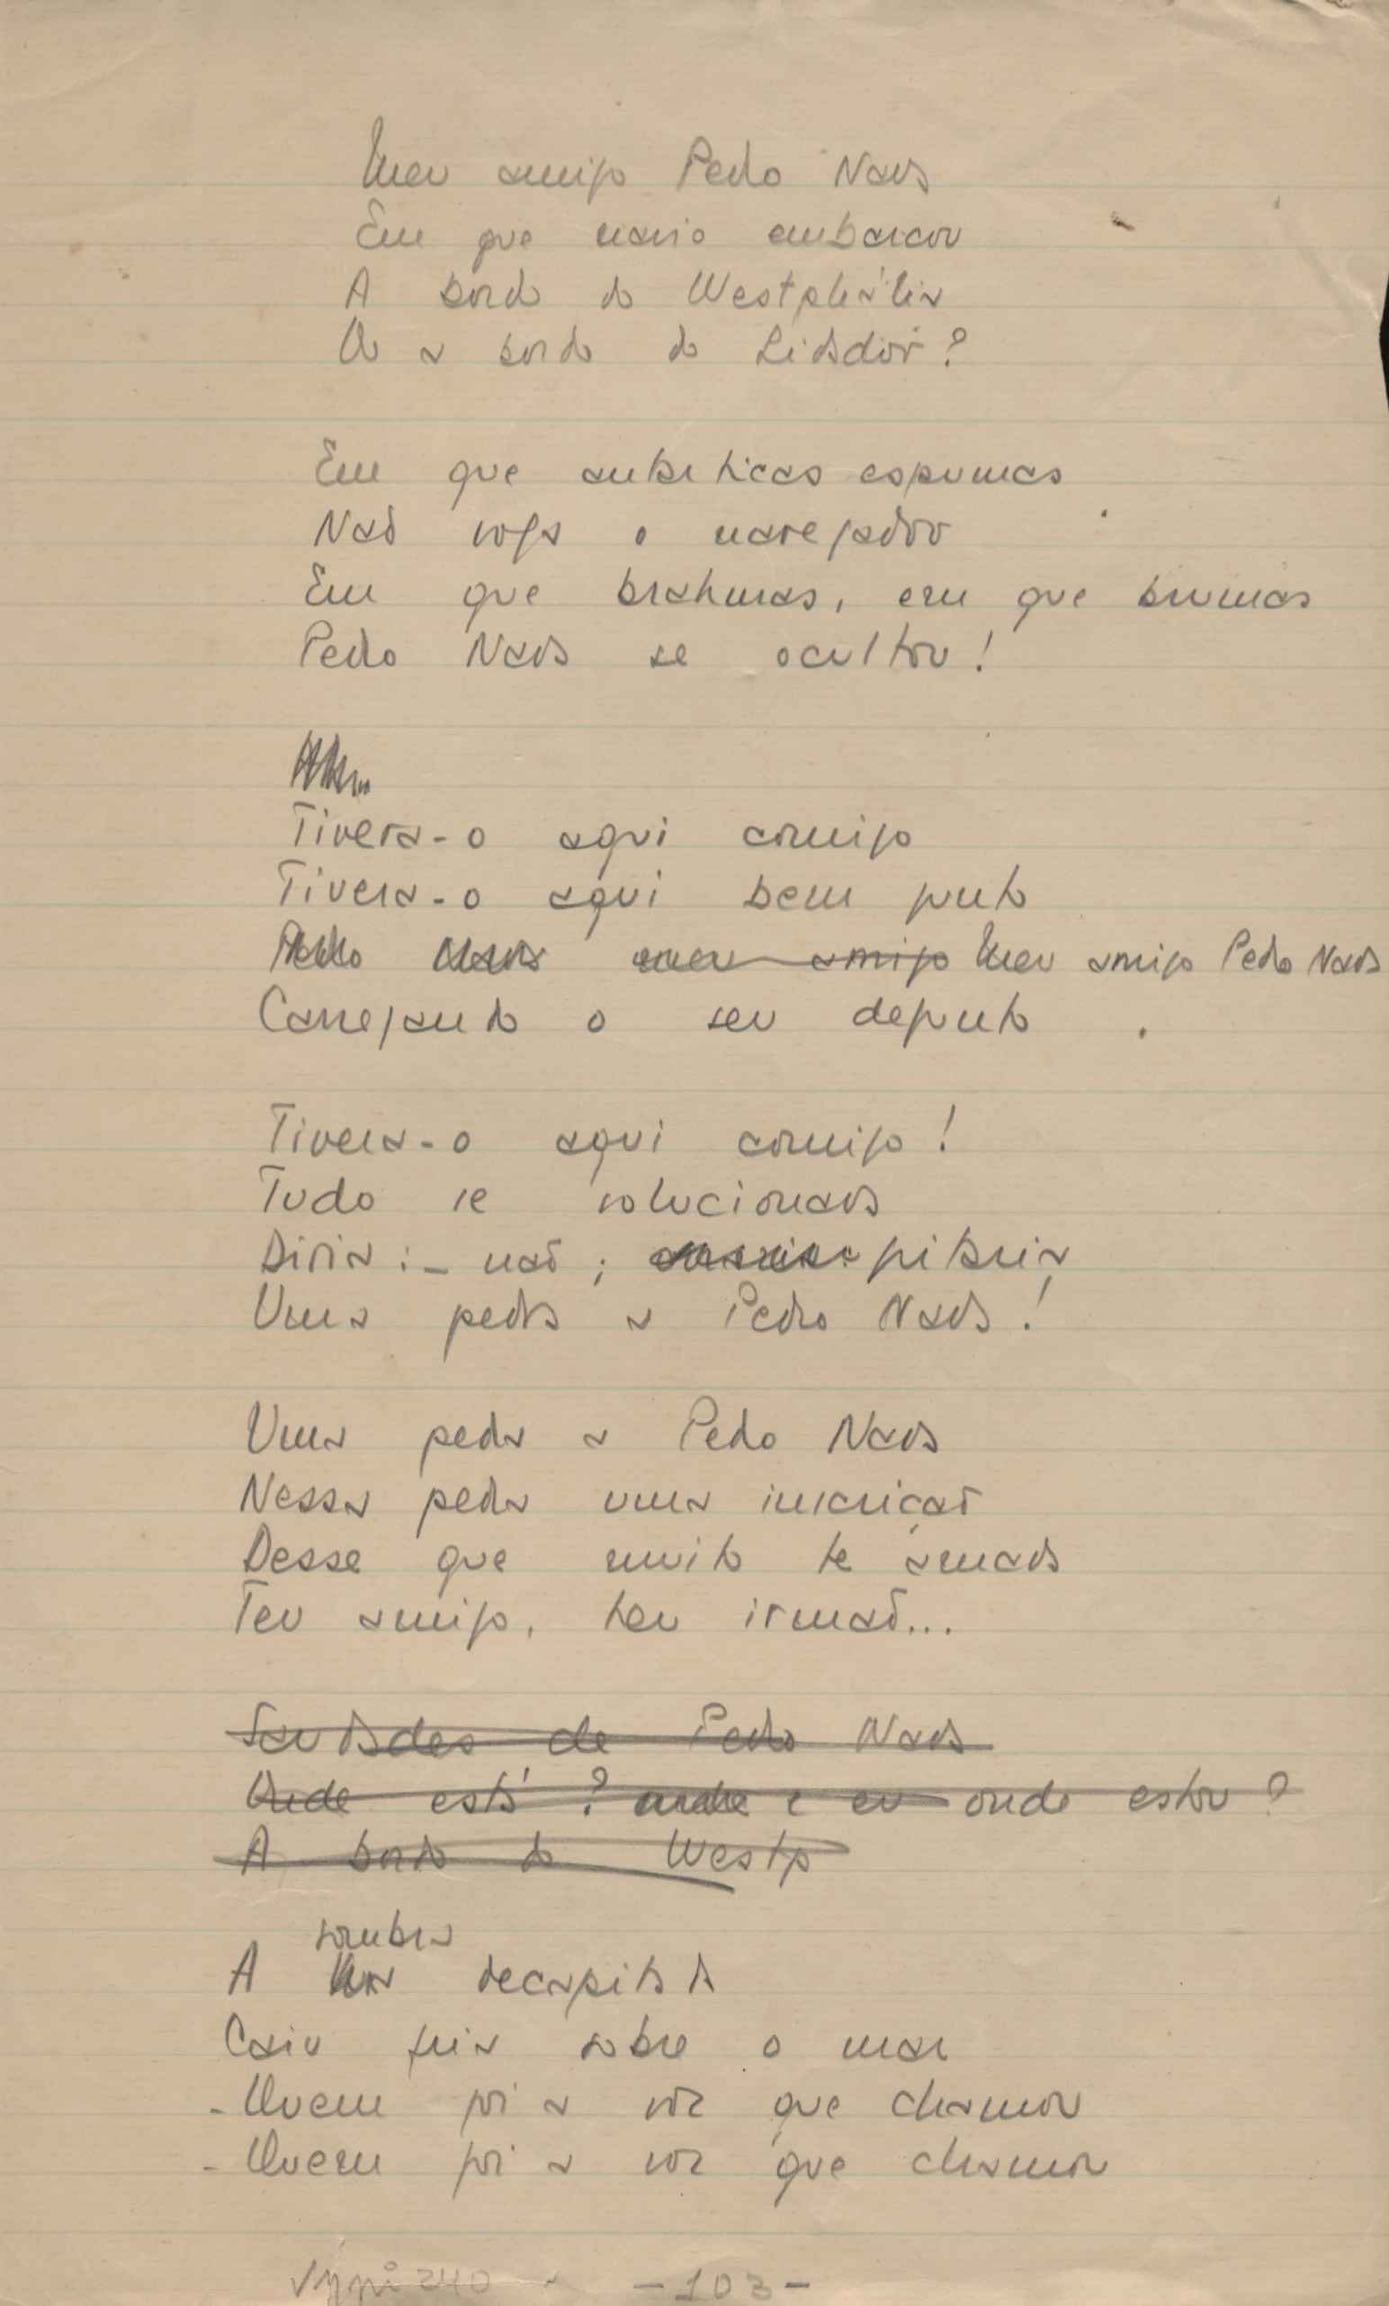 Meu amigo Pedro Nava
Em que navio embarcou
A bordo do Westphália
Ou a bordo do Lidador?
Em que antarticas espumas
Naõ voga o navegador
Em que brahmas, em que brumas
Pedro Nava se ocultou!
Tivera-o aqui comigo
Tivera-o aqui bem junto
Pedro Nava meu amigo Meu amigo Pedro Nava
Carregando o seu defunto
Tivera-o aqui comigo!
Tudo se solucionava
Diria: - naõ; gritaria
Uma pedra a Pedro Nava!
Uma pedra a Pedro Nava
Nessa pedra uma inscriçaõ
Desse que muito te amava
Teu amigo, teu irmaõ...
Saudades de Pedro Nava
Onde está? onde e eu onde estou?
A bordo do Westp
sombra
A decapitada
Caiu fria sobre o mar
- Quem foi a voz que chamou
- Quem foi a voz que chamou
-103-